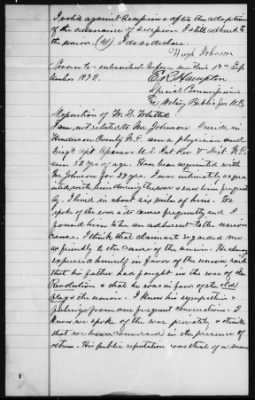 I voted against Secession & after the adoption
of the ordinance of Secession I still adhered to
the union (41) I do so declare.
Hugh Johnson
Sworn to & subscribed before me this 12th Sep
tember 1872.
E R Hampton
Special Commissioner
& Notary Public for N.C.
Deposition of W. D. Whitted
I am not related to Mr Johnson I reside in
Henderson County N.C. am a physician and
U.S. Rev 7th Dist N.C.
am 52 yrs of age. Have been acquainted with
Mr Johnson for 29 yrs. I was intimately acquai
nted with him during the war & saw him frequent
ly. I lived in about six mile of him. We
spoke of the war & its cause frequently and I
found him to be an adherent to the union
cause. I think that claimant regarded me
as friendly to the cause of the union. He always
expressed himself in favor of the union, said
that his father had fought in the war of the
Revolution & that he was in favor of the old
flag & the union. I knew his sympathies &
feelings from our frequent conversations. I
know we spoke of the war privately & think
that we have conversed in the presence of
others. His public reputation was that of a man